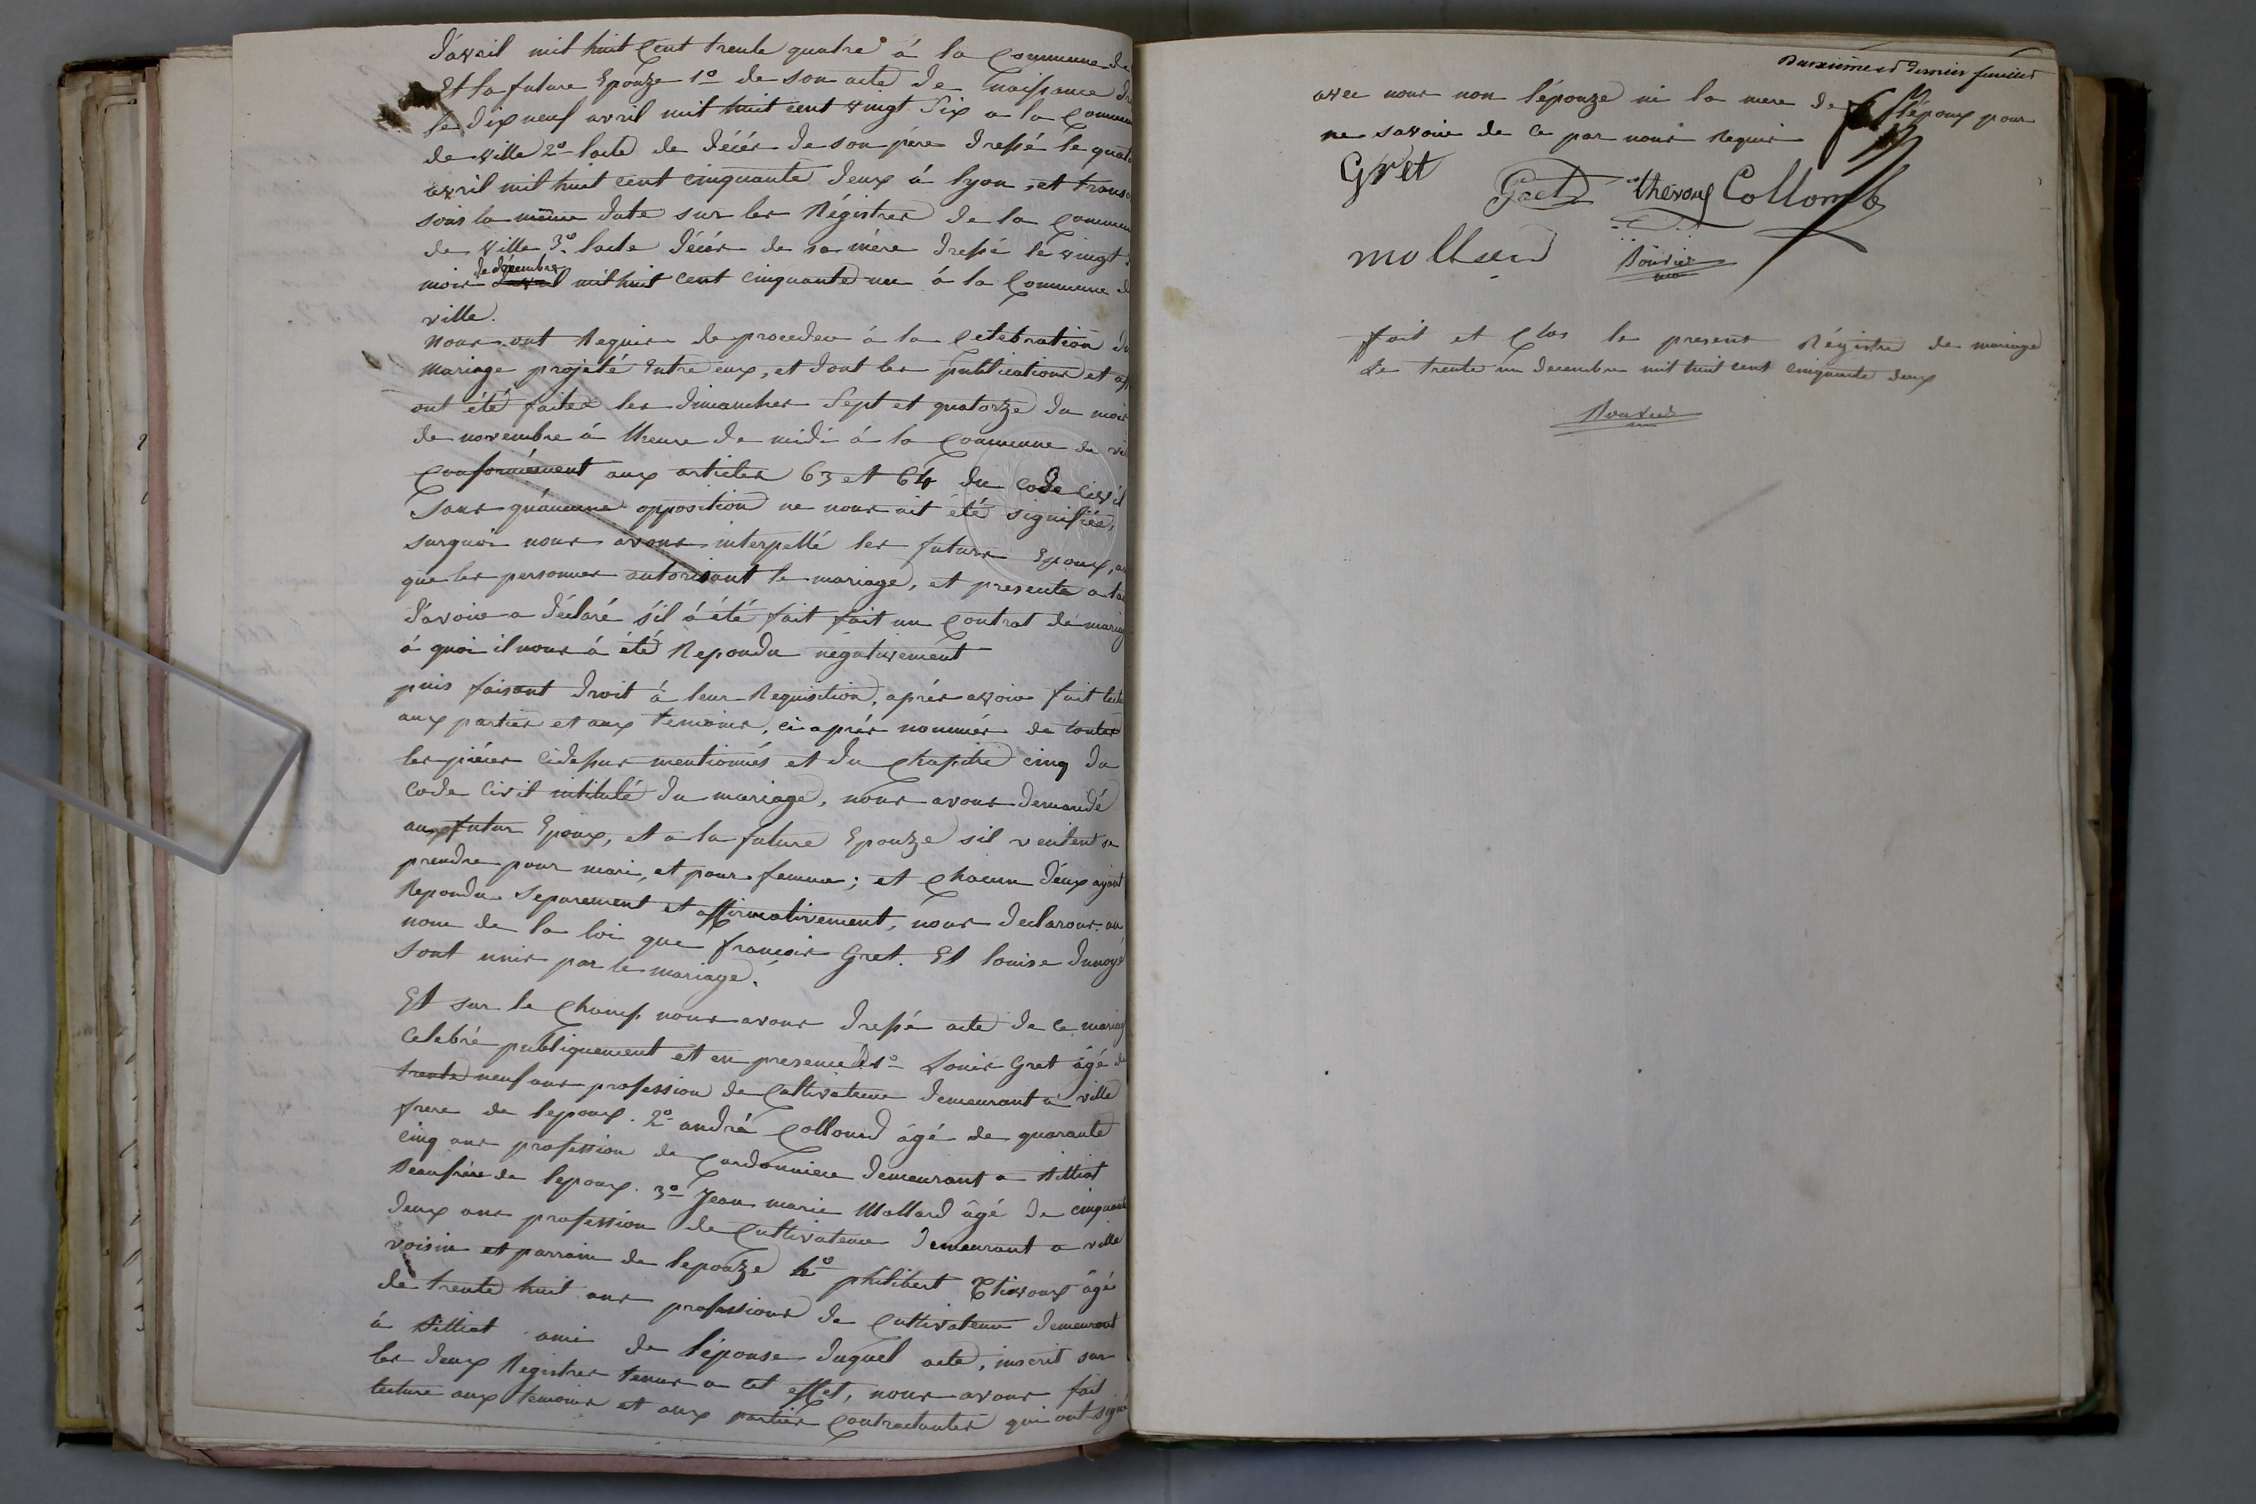 d'avril mil huit Cent trente quatre á la Commune de
Et la future Epouze 1º de son acte de Naissance
le dix neuf avril mil huit cent vingt Six a la Commune
de Ville 2º lacte de décés de son pére dressé le
avril mil huit cent cinquante deux á lyon, et
sous la même date sur les Régistres de la Commune
de Ville 3º lacte décés de sa mére dressé le vingt
de décembre
mois mil huit cent cinquante un á la Commune de
ville.
Nous ont Requis de proceder á la Celebration du
mariage projeté Entre eux, et dont les publications et
ont été faites les dimanches Sept et quatorze du mois
de novembre á lheure de midi á la Commune de
Conformément aux articles 63 et 64 du code Civil
Sans quaucune opposition ne nous ait été signifiée,
surquoi nous avons interpellé les futurs Epoux,
que les personnes autorisant le mariage, et presente a
d'avoir a déclaré s'il á été fait fait un Contrat de mariage
á quoi il nous á été Repondu négativement
puis faisant droit á leur Requisition, aprés avoir fait
aux parties et aux temoins, ci aprés nommés de toutes
les piéces cidessus mentionnés et du Chapitre cinq du
code Civil intitulé du mariage, nous avons demandé
aux futur Epoux, et a la future Epouze sil veulent se
prendre pour mari, et pour femme; et Chacun d'eux ayant
Repondu Separement et affirmativement, nous declarons au
nom de la loi que francois Gret. Et louise
sont unis par le mariage.
Et sur le Champ nous avons dressé acte de ce mariage
Celebré publiquement et en presence de 1º Louis Gret âgé de
trente neuf ans profession de Cultivateur demeurant a ville
frere de lepoux. 2º andré Collomb âgé de quarante
cinq ans profession de Cordonnier demeurant a Billiat
Beaufrére de lepoux. 3º Jean marie Mollard âgé de cinquante
deux ans profession de Cultivateur demeurant a ville
voisin et parrain de lepouze 4º philibert âgé
de trente huit ans professions de Cultivateur demeurant
á Billiat ami de l'épouse duquel acte, inscrit sur
les deux Régistres tenus a cet effet, nous avons fait
lecture aux temoins et aux parties Contractantes qui ont signé
Deuxieme et dernier feuillet
avec nous non l'épouze ni la mere de l'époux pour
ne savoir de ce par nous Requis
Gret
Gret Collomb
mollard
Bouvier
fait et Clos le present Régistre de mariage
Le trente un decembre mil huit cent cinquante deux
Bouvier